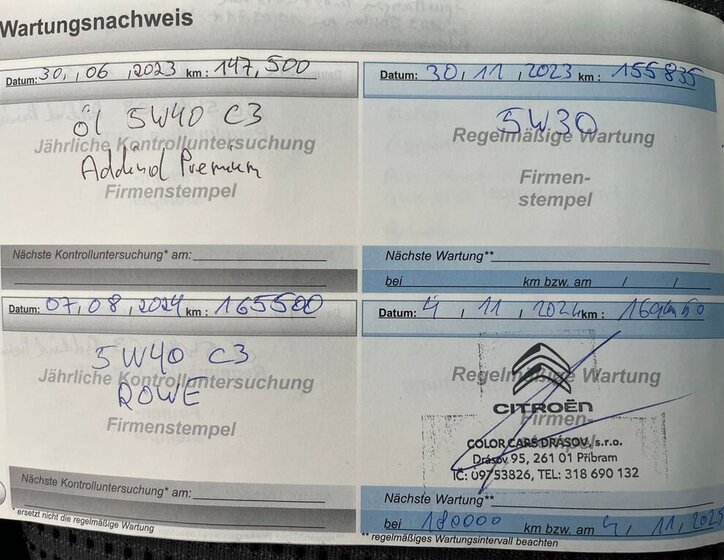 Wartungsnachweis
Datum: 30, 06, 2023 km: 147,500
öl 5W40 C3
Jährliche Kontrolluntersuchung
Addinol Premium
Firmenstempel
Nächste Kontrolluntersuchung* am:
Datum: 30, 11, 2023 km: 155835
5W30
Regelmäßige Wartung
Firmen-
stempel
Nächste Wartung**
bei km bzw. am / /
Datum: 07, 08, 2024 km: 165500
5W40 C3
Jährliche Kontrolluntersuchung
ROWE
Firmenstempel
Nächste Kontrolluntersuchung* am:
*ersetzt nicht die regelmäßige Wartung
Datum: 4, 11, 2024 km:
Regelmäßige Wartung
CITROËN
Firmen-
COLOR CARS DRÁSOV, s.r.o.
Drásov 95, 261 01 Příbram
IČ: 09753826, TEL: 318 690 132
Nächste Wartung**
bei 180000 km bzw. am 4, 11, 2025
**regelmäßiges Wartungsintervall beachten